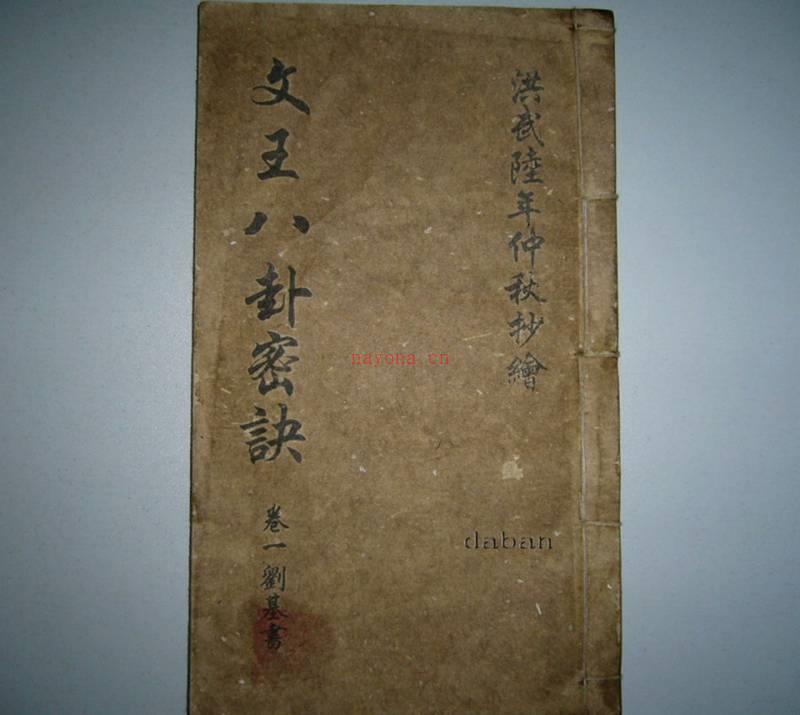 洪武陸年仲秋抄繪
文王八卦密訣
卷一劉基書
nayona.cn
daban